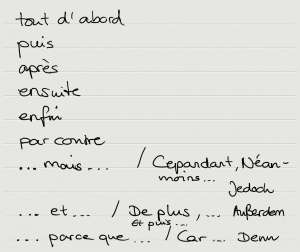 tout d'abord
puis
après
ensuite
enfin
par contre
... mais ... / Cependant, Néan-
moins ...
Jedoch
... et ... / De plus, ... Außerdem
Et puis ...
... parce que ... / Car ... Denn